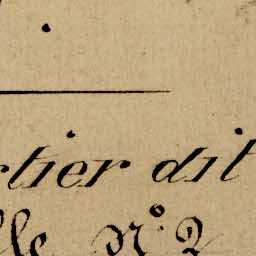 rtier dit
lle N° 2